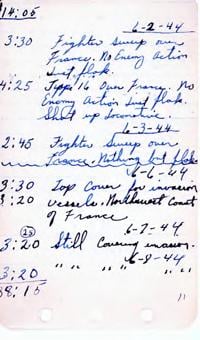 14:05
6-2-44
3:30 Fighter sweep over
France. No Enemy Action
Just flak.
4:25 16 Over France. No
Enemy Action Just flak.
Shot up Locomotive.
6-3-44
2:45 Fighter Sweep over
France. Nothing but flak
6-6-44
3:30 Top Cover for invasion
3:20 vessels. Northwest Coast
of France
6-7-44
3:20 Still Covering invasion.
6-8-44
3:20 " " " " " "
38:15
11